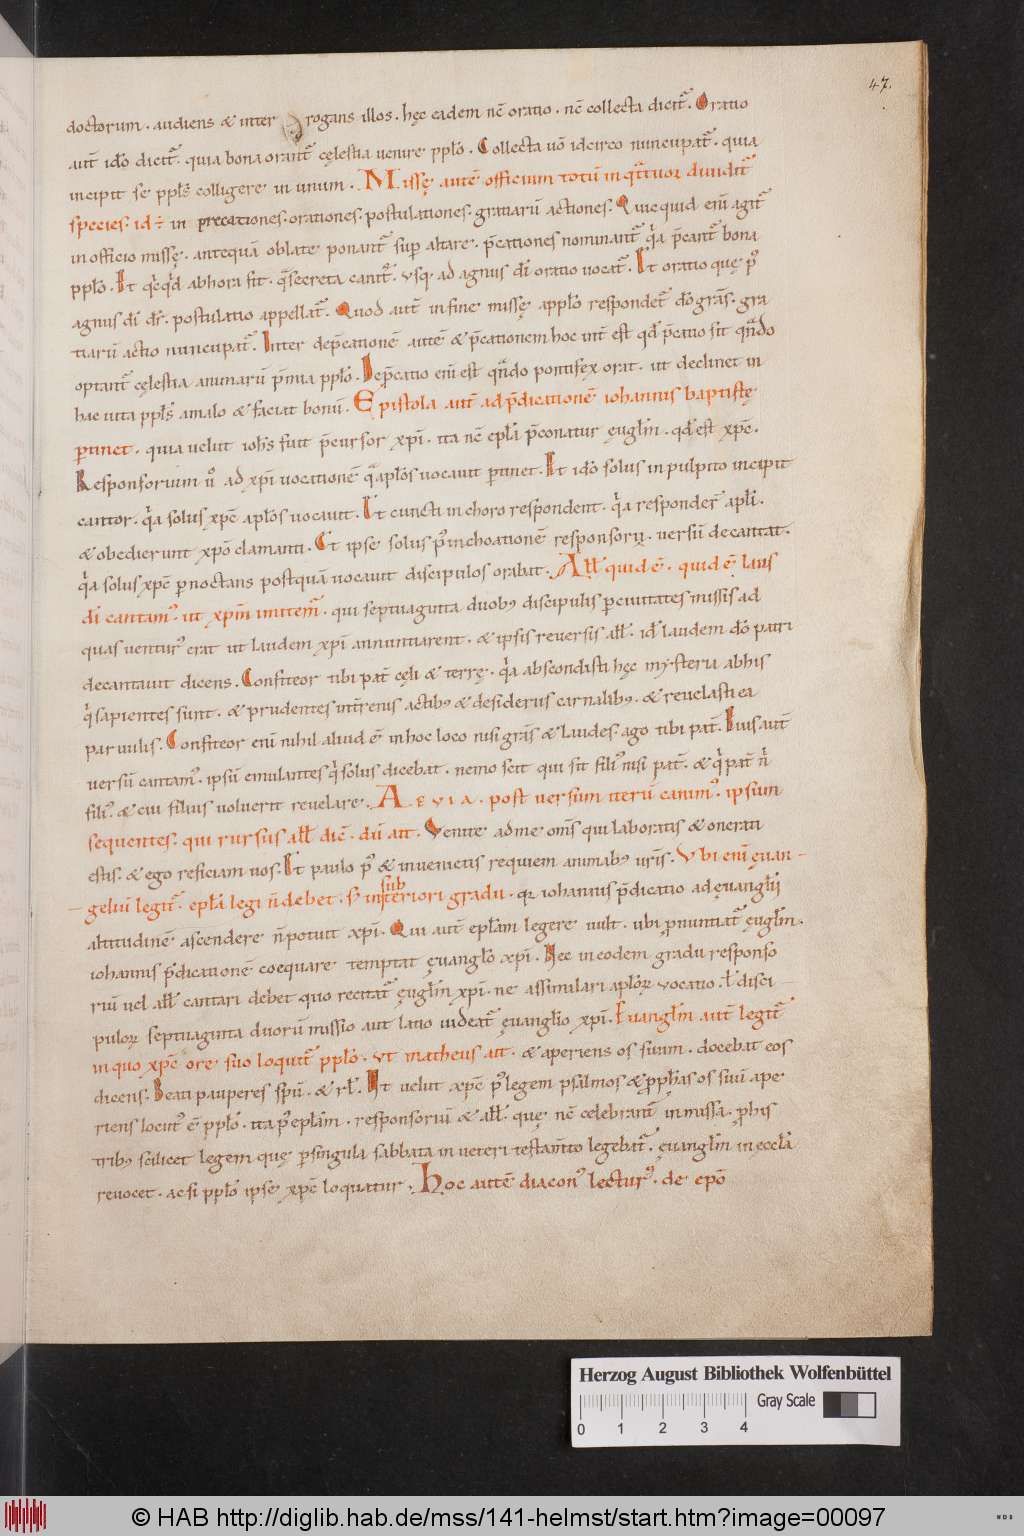 47.
doctorum. audiens & inter rogans illos. hęc eadem nc̄ oratio. nc̄ collecta dicit᷑. Oratio
aut̄ ido dicit᷑. quia bona orant᷑ cęlestia venire pplō. Collecta v̄o idcirco nuncupat᷑. quia
incipit se ppls̄ colligere in unum. Missę autē officium totū in q̄t᷑uor diuidit᷑
species. id ÷ in precationes. orationes. postulationes. gratiarū actiones. Quicquid eni᷑ agit᷑
in officio missę. antequā oblate ponant᷑ sup altare. p̄cationes nominant᷑ q᷑a p̄cant᷑ bona
pplō. It qc̄qd̄ abhora fit. q̄secreta canit᷑. usq; ad agnus dī oratio vocat᷑. It oratio quę p᷒
agnus dī dr̄. postulatio appellat᷑. Quod aut̄ infine missę applō respondet᷑ dō grās. gra
tiarū actio nuncupat᷑. Inter dep̄cationē autē & p̄cationem hoc int̄ est qd̄ p̄catio sit qn̄do
optant᷑ cęlestia animarū p̄mia pplō. Dep̄catio eni᷑ est qn̄do pontifex orat. ut declinet in
hac uita ppls̄ amalo & faciat bonū. Epistola aut̄ ad p̄dicationē iohannis baptistę
ptinet. quia velut ioh̄s fuit p̄cursor xpī. ita nc̄ epl̄a p̄conatur ęuglīm. qd̄ est xpc̄.
Responsorium ū ad xpī uocationē q̄ apl̄os uocauit ptinet. It ido solus in pulpito incipit
cantor. q᷑a solus xpc̄ apl̄os uocauit. It cuncti in choro respondent. q᷑a responder̄ apl̄i.
& obedierunt xpō clamanti. Et ipse solus p᷒ inchoationē responsorii. versū decantat.
q᷑a solus xpc̄ pnoctans postquā uocauit discipulos orabat. All̄ quid ē. quid ē laus
dī cantam᷒. ut xpm̄ imitem᷑. qui septuaginta duob; discipulis pciuitates missis ad
quas ventur᷒ erat ut laudem xpī annuntiarent. & ipsis reuersis all̄. id ÷ laudem dō patri
decantauit dicens. Confiteor tibi pat̄ cęli & terrę. q᷑a abscondisti hęc mysteria abhis
q᷑ sapientes sunt. & prudentes int̄renis actib; & desideriis carnalib;. & reuelasti ea
paruulis. Confiteor eni᷑ nihil aliud ē in hoc loco nisi grās & laudes ago tibi pat̄.
versū cantam᷒. ipsū emulantes q᷑ solus dicebat. nemo scit qui sit fili᷒ nisi pat̄. & q᷑ pat̄ n᷑
fili᷒. & cui filius uoluerit reuelare. AEVIA. post versum iterū canim᷒. ipsum
sequentes. qui rursus all̄ dic̄. dū ait. Venite ad me om̄s qui laboratis & onerati
estis. & ego reficiam uos. It paulo p᷒ & inuenietis requiem animab; ur̄is. Vbi eni᷑ ęuan-
-geliū legit᷑. epl̄a legi n̄ debet. s; in sub inferiori gradu. q; iohannis p̄dicatio ad ęuangl̄ii
altitudinē ascendere n̄ potuit xpī. Qui aut̄ epl̄am legere uult. ubi pnuntiat᷑ ęuglīm.
iohannis p̄dicationē coequare temptat ęuangl̄o xpī. Nec in eodem gradu responso
riū uel all̄ cantari debet quo recitat᷑ ęuglīm xpī. ne assimilari aplor; vocatio. l̄ disci
pulor; septuaginta duorū missio aut latio uideat᷑ ęuanglio xpī. Euanglīm aut̄ legit᷑
in quo xpc̄ ore suo loquit᷑ pplō. ut matheus ait. & aperiens os suum. docebat eos
dicens. Beati pauperes spū. & rl̄. It uelut xpc̄ p᷒ legem psalmos & pph̄as os suū ape
riens locut᷒ ē pplō. ita p᷒ epl̄am. responsoriū & all̄. quę nc̄ celebrant᷑ in missa. phis
trib; scilicet legem quę psingula sabbata in ueteri testam̄to legebat᷑. ęuanglīm in ęccl̄a
reuocet. ac si pplō ipse xpc̄ loquatur. Hoc autē diacon᷒ lectur᷒. de epō
Herzog August Bibliothek Wolfenbüttel
Gray Scale
0 1 2 3 4
© HAB http://diglib.hab.de/mss/141-helmst/start.htm?image=00097